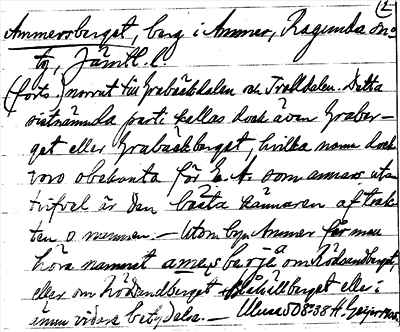 2
Ammersberget, berg i Ammer, Ragunda
tg, Jämtl. l.
(forts.) norrut till Grabäckdalen och Trolldalen. Detta
sistnämnda parti kallas dock även Graber-
get eller Grabäckberget, hvilka namn dock
voro obekanta för E. A. som annars utan
tvifvel är den bästa kännaren af trak-
ten o namnen. – Utom byn Ammer får man
höra namnet om Rödsandberget,
eller om Rödsandberget + Blåhällberget eller i
ännu vidare betydelse. – Uma 508:38 H. Geijer